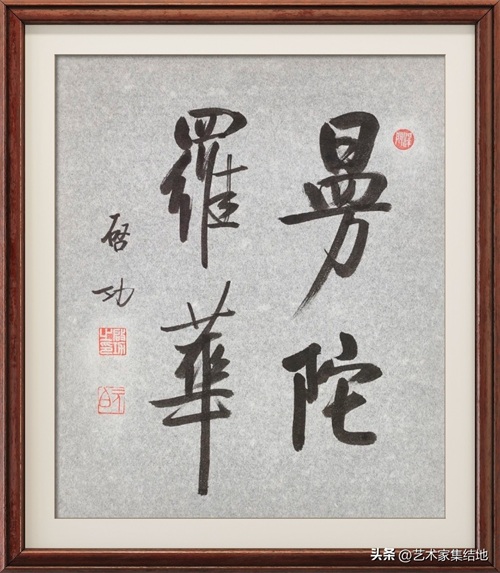 曼陀
羅華
啓功
头条 @艺术家集结地